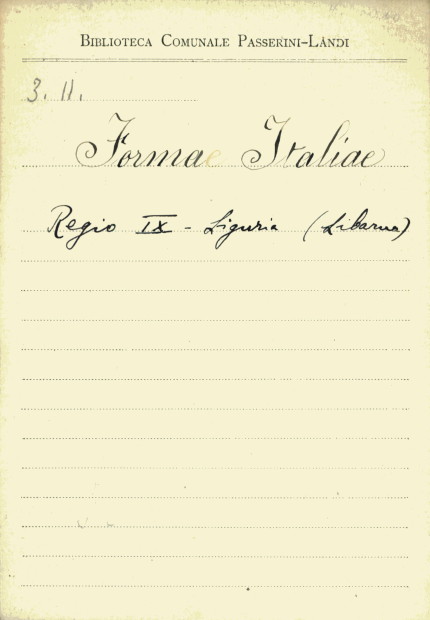 BIBLIOTECA COMUNALE PASSERINI-LANDI
3. II.
Forma Italiae
Regio IX - Liguria (Libarna)